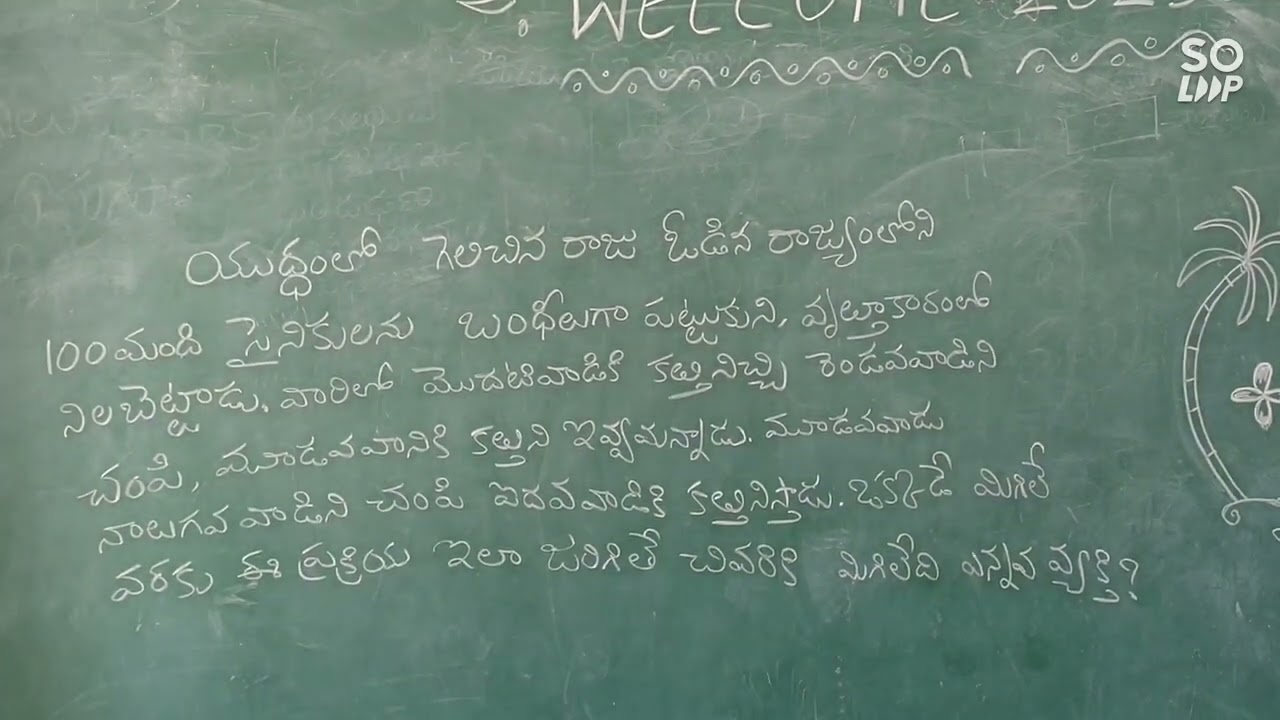 WELCOME 2023
SO
LOOP
యుద్ధంలో గెలిచిన రాజు ఓడిన రాజ్యంలోని
100 మంది సైనికులను బంధీలుగా పట్టుకుని, వృత్తాకారంలో
నిలబెట్టాడు. వారిలో మొదటివాడికి కత్తినిచ్చి రెండవవాడిని
చంపి, మూడవవానికి కత్తుని ఇవ్వమన్నాడు. మూడవవాడు
నాలుగవ వాడిని చంపి ఐదవవాడికి కత్తునిస్తాడు. ఒక్కడే మిగిలే
వరకు ఈ ప్రక్రియ ఇలా జరిగితే చివరికి మిగిలేది ఎన్నవ వ్యక్తి?